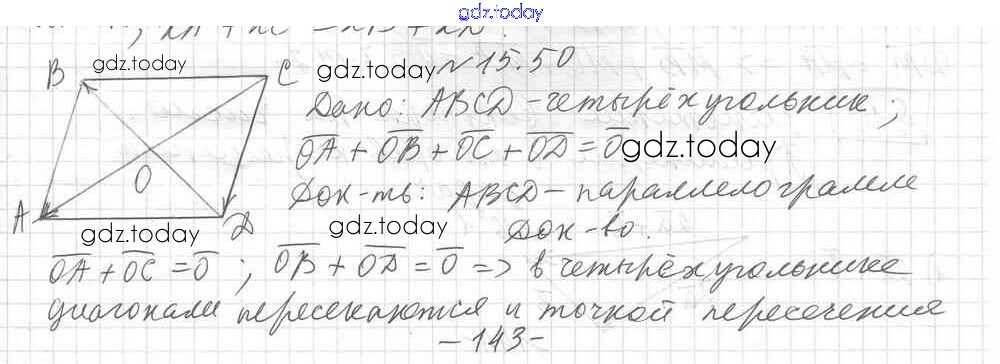 gdz.today
B gdz.today C gdz.today № 15.50
Дано: ABCD - четырёхугольник;
OA + OB + OC + OD = O gdz.today
O Док-ть: ABCD - параллелограмм
A D
gdz.today gdz.today Док-во.
OA + OC = O ; OB + OD = O => в четырёхугольнике
диагонали пересекаются и точкой пересечения
- 143 -